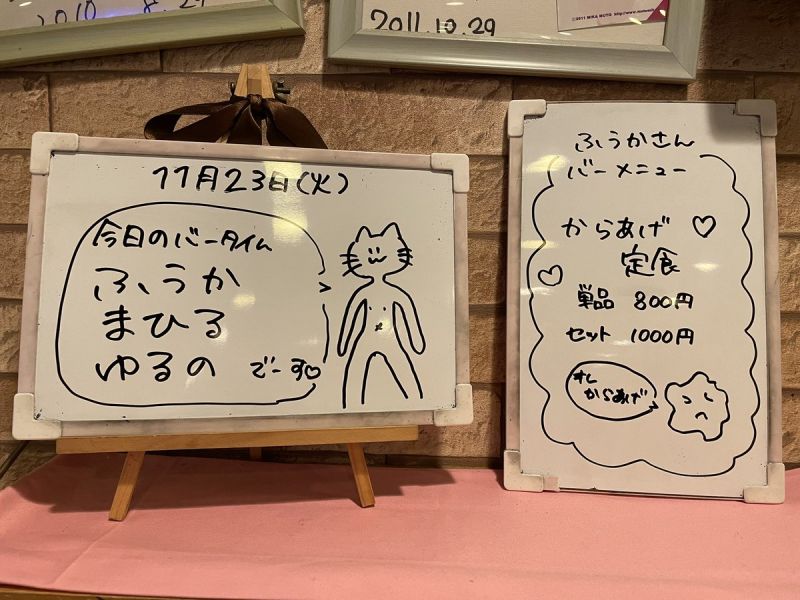 2010 8.29
2011.10.29
©2011 MIKA MUTO
11月23日(火)
今日のバータイム
ふうか
まひる
ゆるの でーす♡
ふうかさん
バーメニュー
からあげ♡
♡定食
単品 800円
セット 1000円
オレ
からあげ